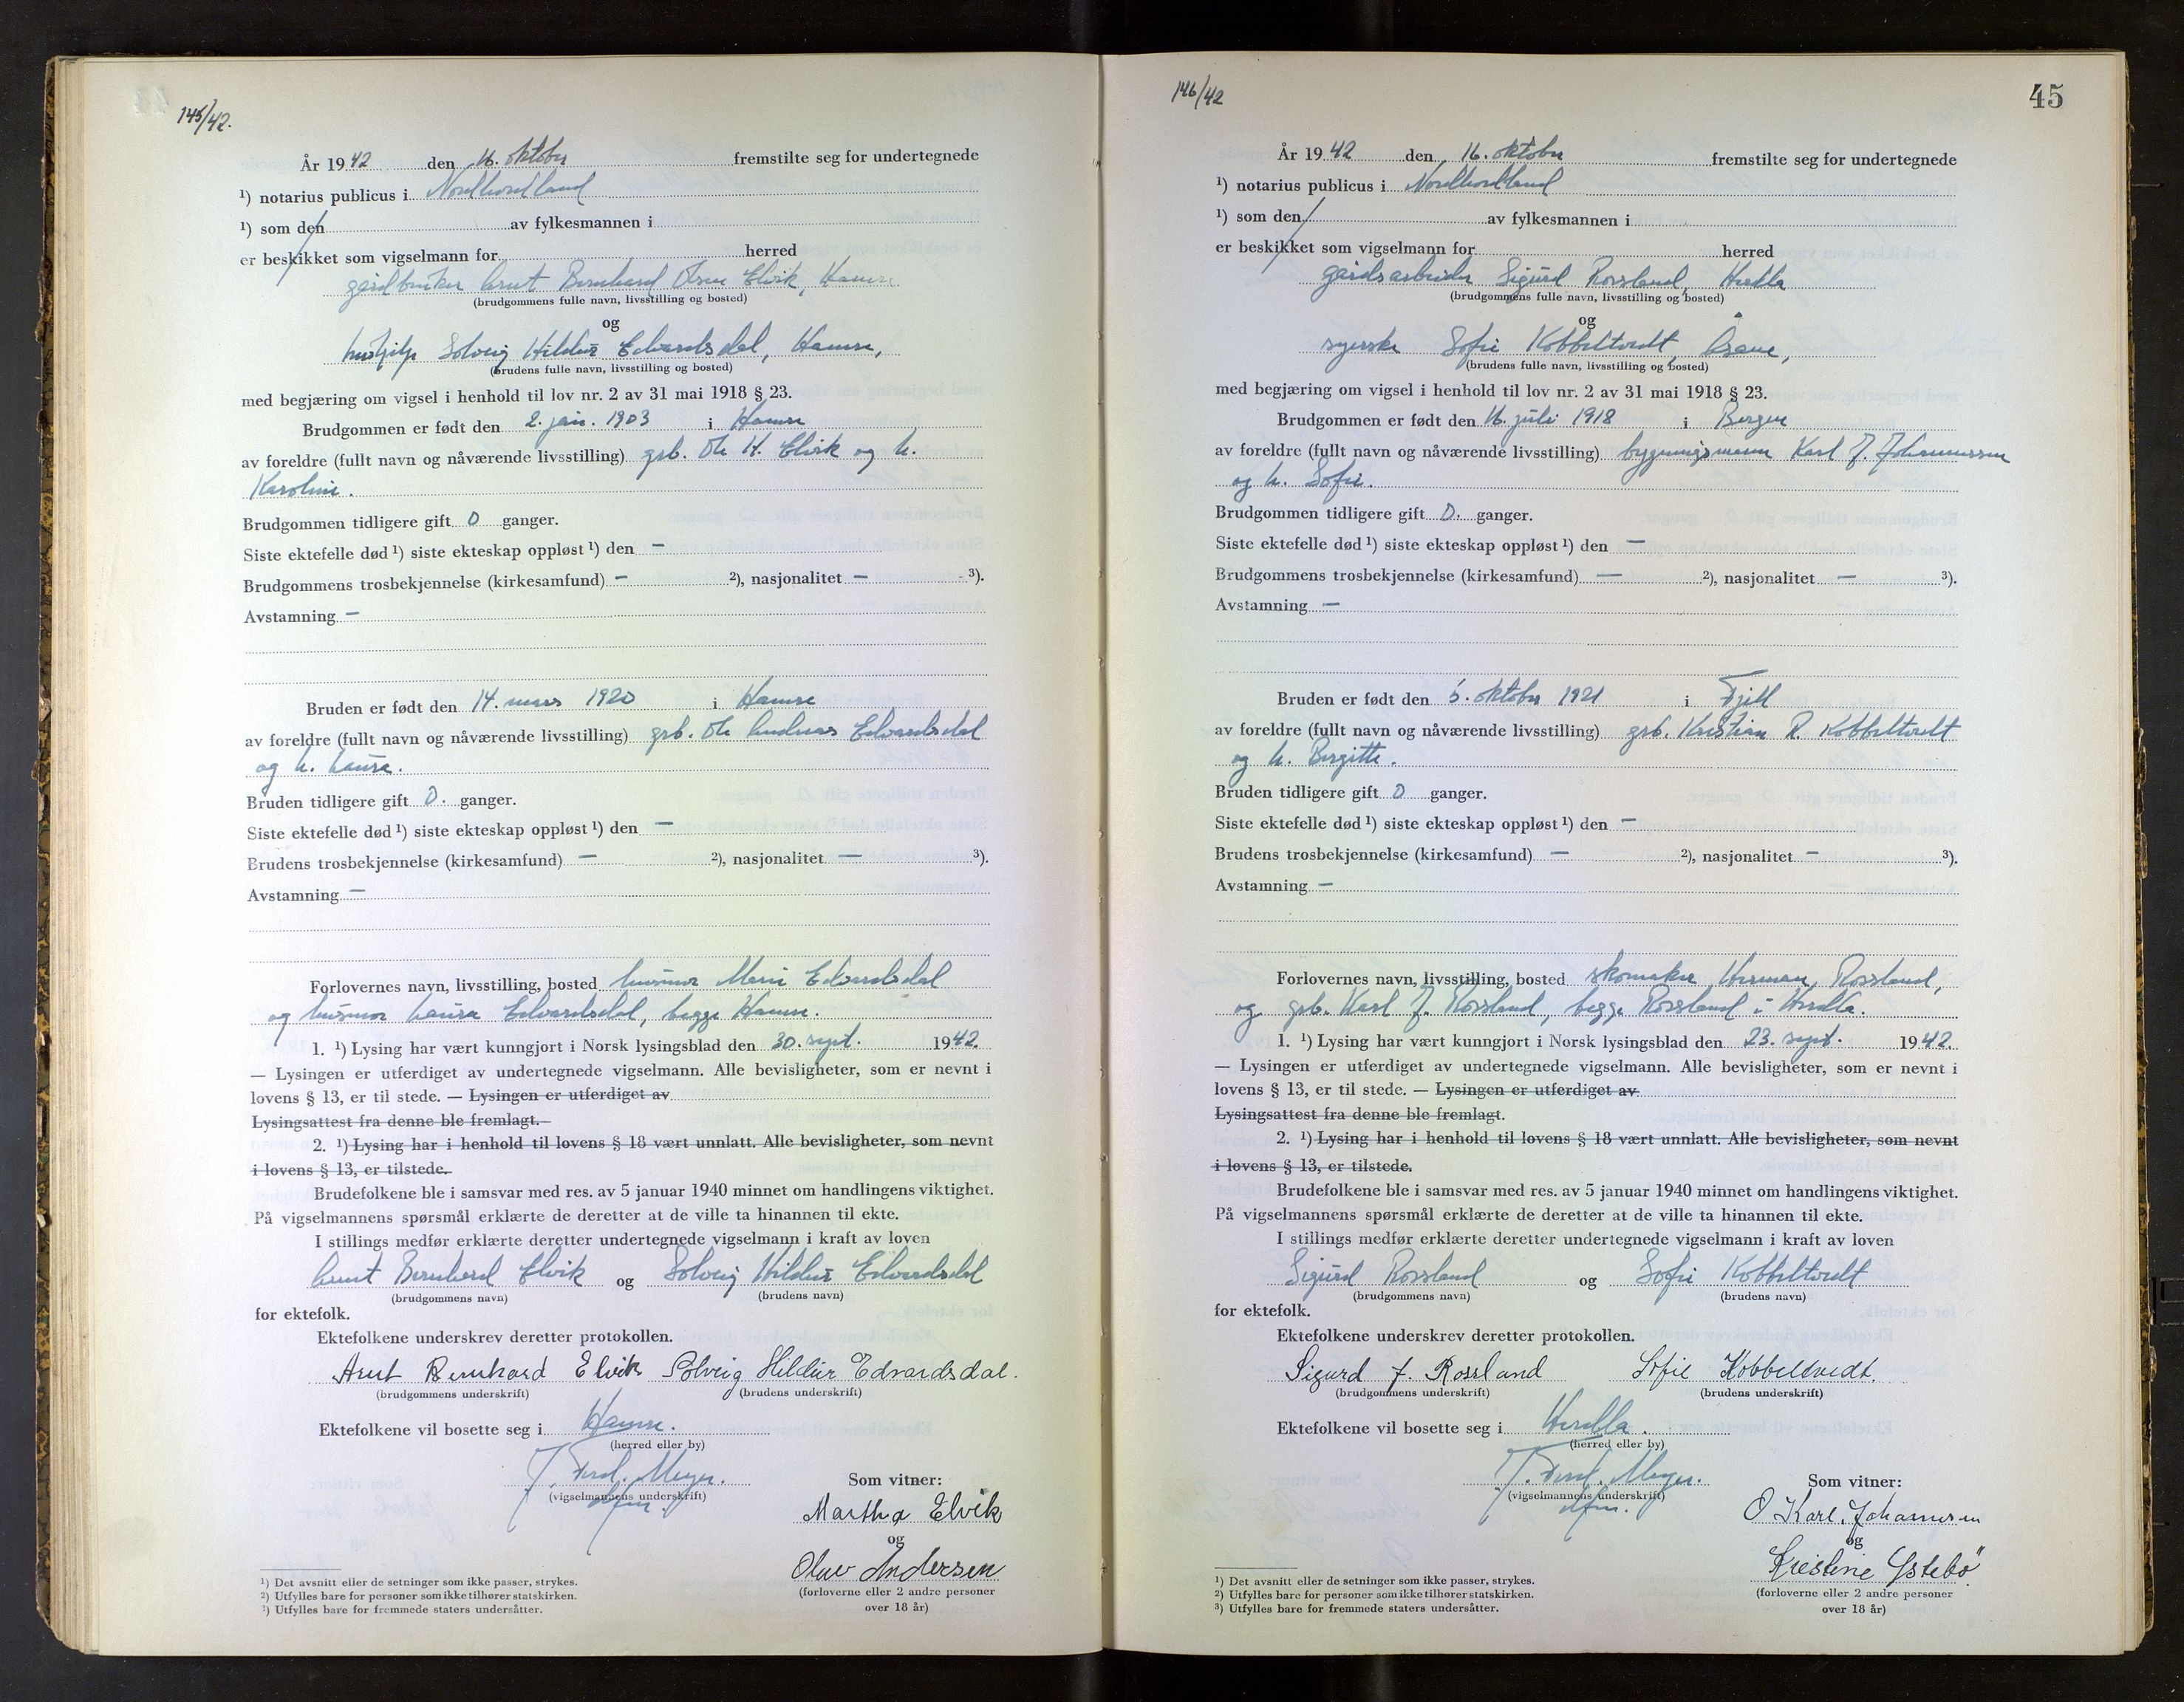 145/42.
År 1942 den 16. oktober fremstilte seg for undertegnede
¹) notarius publicus i Nordhordland
¹) som den av fylkesmannen i
er beskikket som vigselmann for herred
gårdbruker Arnt Bernhard Olsen Elvik, Hamre
(brudgommens fulle navn, livsstilling og bosted)
og
hushjelp Solveig Hildur Edvardsdal, Hamre,
(brudens fulle navn, livsstilling og bosted)
med begjæring om vigsel i henhold til lov nr. 2 av 31 mai 1918 § 23.
Brudgommen er født den 2. jan. 1903 i Hamre
av foreldre (fullt navn og nåværende livsstilling) grb. Ole H. Elvik og h.
Karoline.
Brudgommen tidligere gift 0 ganger.
Siste ektefelle død ¹) siste ekteskap oppløst ¹) den —
Brudgommens trosbekjennelse (kirkesamfund) — ²), nasjonalitet — ³).
Avstamning —
Bruden er født den 14. mars 1920 i Hamre
av foreldre (fullt navn og nåværende livsstilling) grb. Ole Andreas Edvardsdal
og h. Laura.
Bruden tidligere gift 0. ganger.
Siste ektefelle død ¹) siste ekteskap oppløst ¹) den —
Brudens trosbekjennelse (kirkesamfund) — ²), nasjonalitet — ³).
Avstamning —
Forlovernes navn, livsstilling, bosted husmor Marie Edvardsdal
og husmor Laura Edvardsdal, begge Hamre.
1. ¹) Lysing har vært kunngjort i Norsk lysingsblad den 30. sept. 1942.
— Lysingen er utferdiget av undertegnede vigselmann. Alle bevisligheter, som er nevnt i
lovens § 13, er til stede. — Lysingen er utferdiget av
Lysingsattest fra denne ble fremlagt. —
2. ¹) Lysing har i henhold til lovens § 18 vært unnlatt. Alle bevisligheter, som nevnt
i lovens § 13, er tilstede.
Brudefolkene ble i samsvar med res. av 5 januar 1940 minnet om handlingens viktighet.
På vigselmannens spørsmål erklærte de deretter at de ville ta hinannen til ekte.
I stillings medfør erklærte deretter undertegnede vigselmann i kraft av loven
Arnt Bernhard Elvik og Solveig Hildur Edvardsdal
(brudgommens navn) (brudens navn)
for ektefolk.
Ektefolkene underskrev deretter protokollen.
Arnt Bernhard Elvik Solveig Hildur Edvardsdal.
(brudgommens underskrift) (brudens underskrift)
Ektefolkene vil bosette seg i Hamre.
(herred eller by)
J. Ferd. Meyer.
(vigselmannens underskrift)
Som vitner:
Martha Elvik
og
Olav Andersen
(forloverne eller 2 andre personer
over 18 år)
¹) Det avsnitt eller de setninger som ikke passer, strykes.
²) Utfylles bare for personer som ikke tilhører statskirken.
³) Utfylles bare for fremmede staters undersåtter.
146/42
45
År 1942 den 16. oktober fremstilte seg for undertegnede
¹) notarius publicus i Nordhordland
¹) som den av fylkesmannen i
er beskikket som vigselmann for herred
gårdsarbeider Sigurd Rossland, Herdla
(brudgommens fulle navn, livsstilling og bosted)
og
syerske Sofie Kobbeltvedt, Åsane,
(brudens fulle navn, livsstilling og bosted)
med begjæring om vigsel i henhold til lov nr. 2 av 31 mai 1918 § 23.
Brudgommen er født den 16. juli 1918 i Bergen
av foreldre (fullt navn og nåværende livsstilling) bygningsmann Karl J. Johannessen
og h. Sofie.
Brudgommen tidligere gift 0. ganger.
Siste ektefelle død ¹) siste ekteskap oppløst ¹) den —
Brudgommens trosbekjennelse (kirkesamfund) — ²), nasjonalitet — ³).
Avstamning —
Bruden er født den 5. oktober 1921 i Fjell
av foreldre (fullt navn og nåværende livsstilling) grb. Kristian R. Kobbeltvedt
og h. Bergitte.
Bruden tidligere gift 0 ganger.
Siste ektefelle død ¹) siste ekteskap oppløst ¹) den —
Brudens trosbekjennelse (kirkesamfund) — ²), nasjonalitet — ³).
Avstamning —
Forlovernes navn, livsstilling, bosted skomaker Herman Rossland,
og grb. Karl J. Rossland, begge Rossland i Herdla.
1. ¹) Lysing har vært kunngjort i Norsk lysingsblad den 23. sept. 1942.
— Lysingen er utferdiget av undertegnede vigselmann. Alle bevisligheter, som er nevnt i
lovens § 13, er til stede. — Lysingen er utferdiget av
Lysingsattest fra denne ble fremlagt.
2. ¹) Lysing har i henhold til lovens § 18 vært unnlatt. Alle bevisligheter, som nevnt
i lovens § 13, er tilstede.
Brudefolkene ble i samsvar med res. av 5 januar 1940 minnet om handlingens viktighet.
På vigselmannens spørsmål erklærte de deretter at de ville ta hinannen til ekte.
I stillings medfør erklærte deretter undertegnede vigselmann i kraft av loven
Sigurd Rossland og Sofie Kobbeltvedt
(brudgommens navn) (brudens navn)
for ektefolk.
Ektefolkene underskrev deretter protokollen.
Sigurd J. Rossland Sofie Kobbeltvedt.
(brudgommens underskrift) (brudens underskrift)
Ektefolkene vil bosette seg i Herdla.
(herred eller by)
J. Ferd. Meyer.
(vigselmannens underskrift)
Som vitner:
O Karl. Johannesen
og
Kristine Ystebö
(forloverne eller 2 andre personer
over 18 år)
¹) Det avsnitt eller de setninger som ikke passer, strykes.
²) Utfylles bare for personer som ikke tilhører statskirken.
³) Utfylles bare for fremmede staters undersåtter.